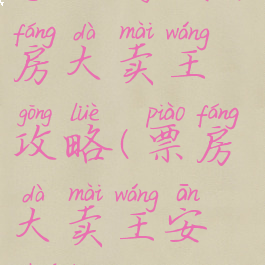 fáng dà mài wáng
房大卖王
gōng lüè piào fáng
攻略(票房
dà mài wáng ān
大卖王安